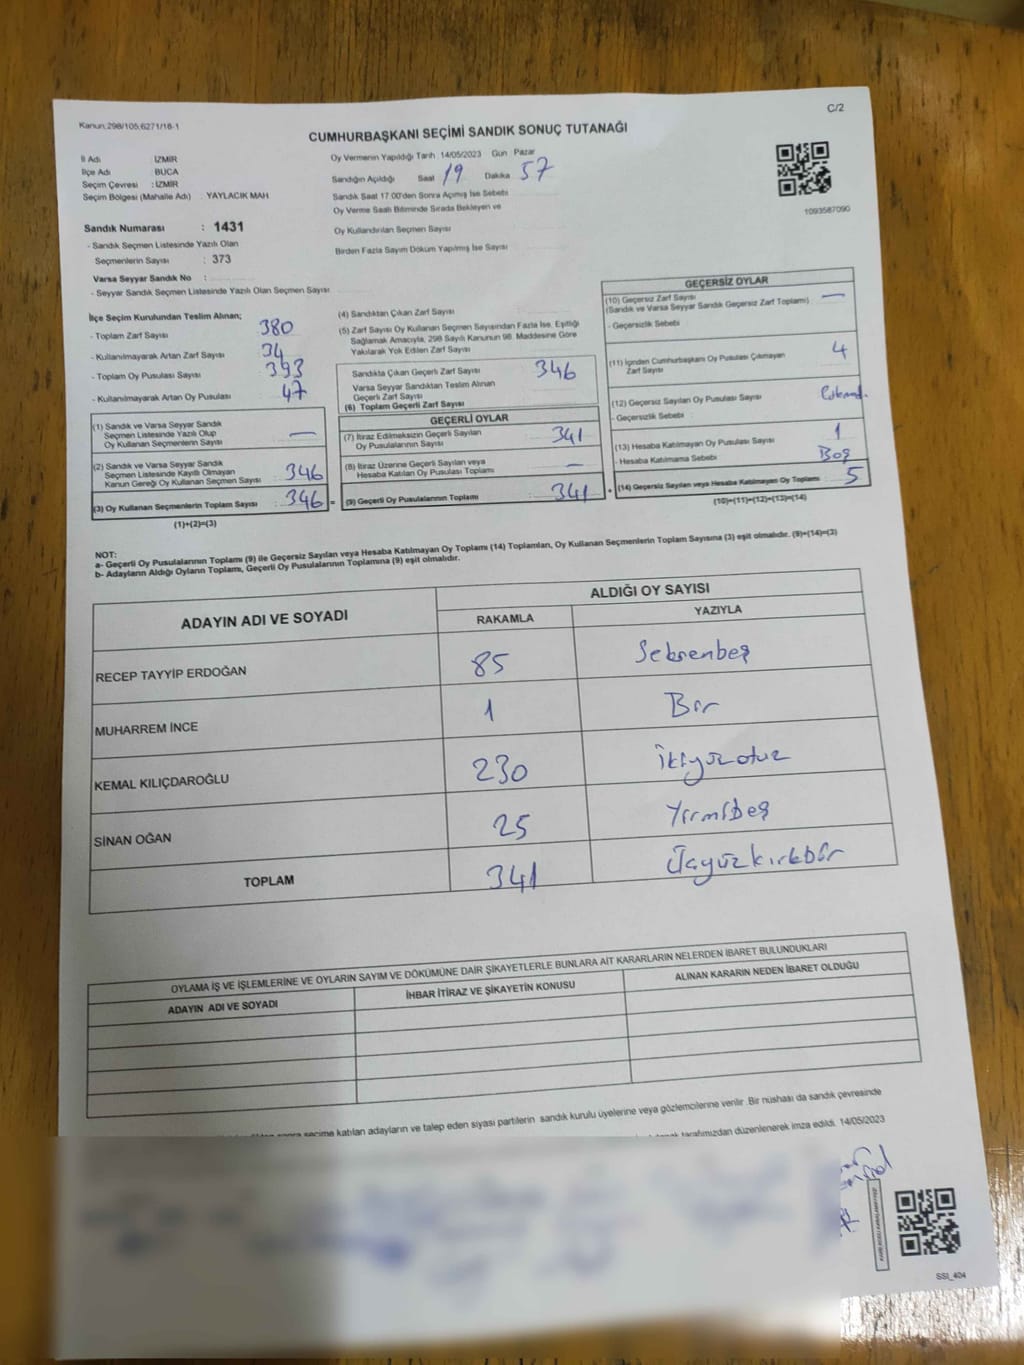 C/2
Kanun;298/105;6271/18-1
CUMHURBAŞKANI SEÇİMİ SANDIK SONUÇ TUTANAĞI
İl Adı : İZMİR
İlçe Adı : BUCA
Seçim Çevresi : İZMİR
Seçim Bölgesi (Mahalle Adı) : YAYLACIK MAH
Sandık Numarası : 1431
- Sandık Seçmen Listesinde Yazılı Olan
Seçmenlerin Sayısı : 373
Varsa Seyyar Sandık No :
- Seyyar Sandık Seçmen Listesinde Yazılı Olan Seçmen Sayısı
Oy Vermenin Yapıldığı Tarih 14/05/2023 Gün : Pazar
Sandığın Açıldığı Saat 19 Dakika 57
Sandık Saat 17.00'den Sonra Açılmış İse Sebebi
Oy Verme Saati Bitiminde Sırada Bekleyen ve
Oy Kullandırılan Seçmen Sayısı
Birden Fazla Sayım Döküm Yapılmış İse Sayısı
1093587090
İlçe Seçim Kurulundan Teslim Alınan;
- Toplam Zarf Sayısı 380
- Kullanılmayarak Artan Zarf Sayısı 34
- Toplam Oy Pusulası Sayısı 393
- Kullanılmayarak Artan Oy Pusulası 47
(1) Sandık ve Varsa Seyyar Sandık
Seçmen Listesinde Yazılı Olup
Oy Kullanan Seçmenlerin Sayısı —
(2) Sandık ve Varsa Seyyar Sandık
Seçmen Listesinde Kayıtlı Olmayan
Kanun Gereği Oy Kullanan Seçmen Sayısı 346
(3) Oy Kullanan Seçmenlerin Toplam Sayısı 346 =
(1)+(2)=(3)
(4) Sandıktan Çıkan Zarf Sayısı
(5) Zarf Sayısı Oy Kullanan Seçmen Sayısından Fazla İse, Eşitliği
Sağlamak Amacıyla, 298 Sayılı Kanunun 98. Maddesine Göre
Yakılarak Yok Edilen Zarf Sayısı
Sandıkta Çıkan Geçerli Zarf Sayısı 346
Varsa Seyyar Sandıktan Teslim Alınan
Geçerli Zarf Sayısı
(6) Toplam Geçerli Zarf Sayısı
GEÇERLİ OYLAR
(7) İtiraz Edilmeksizin Geçerli Sayılan
Oy Pusulalarının Sayısı 341
(8) İtiraz Üzerine Geçerli Sayılan veya
Hesaba Katılan Oy Pusulası Toplamı —
(9) Geçerli Oy Pusulalarının Toplamı 341 +
GEÇERSİZ OYLAR
(10) Geçersiz Zarf Sayısı
(Sandık ve Varsa Seyyar Sandık Geçersiz Zarf Toplamı) : —
- Geçersizlik Sebebi
(11) İçinden Cumhurbaşkanı Oy Pusulası Çıkmayan
Zarf Sayısı 4
(12) Geçersiz Sayılan Oy Pusulası Sayısı
- Geçersizlik Sebebi
(13) Hesaba Katılmayan Oy Pusulası Sayısı 1
- Hesaba Katılmama Sebebi Boş
(14) Geçersiz Sayılan veya Hesaba Katılmayan Oy Toplamı 5
(10)+(11)+(12)+(13)=(14)
NOT:
a- Geçerli Oy Pusulalarının Toplamı (9) ile Geçersiz Sayılan veya Hesaba Katılmayan Oy Toplamı (14) Toplamları, Oy Kullanan Seçmenlerin Toplam Sayısına (3) eşit olmalıdır. (9)+(14)=(3)
b- Adayların Aldığı Oyların Toplamı, Geçerli Oy Pusulalarının Toplamına (9) eşit olmalıdır.
ADAYIN ADI VE SOYADI
ALDIĞI OY SAYISI
RAKAMLA YAZIYLA
RECEP TAYYİP ERDOĞAN 85 Seksenbeş
MUHARREM İNCE 1 Bir
KEMAL KILIÇDAROĞLU 230 ikiyüzotuz
SİNAN OĞAN 25 Yirmibeş
TOPLAM 341 Üçyüzkırkbir
OYLAMA İŞ VE İŞLEMLERİNE VE OYLARIN SAYIM VE DÖKÜMÜNE DAİR ŞİKAYETLERLE BUNLARA AİT KARARLARIN NELERDEN İBARET BULUNDUKLARI
ADAYIN ADI VE SOYADI İHBAR İTİRAZ VE ŞİKAYETİN KONUSU ALINAN KARARIN NEDEN İBARET OLDUĞU
sonra seçime katılan adayların ve talep eden siyasi partilerin sandık kurulu üyelerine veya gözlemcilerine verilir. Bir nüshası da sandık çevresinde
tarafımızdan düzenlenerek imza edildi. 14/05/2023
SSI_404